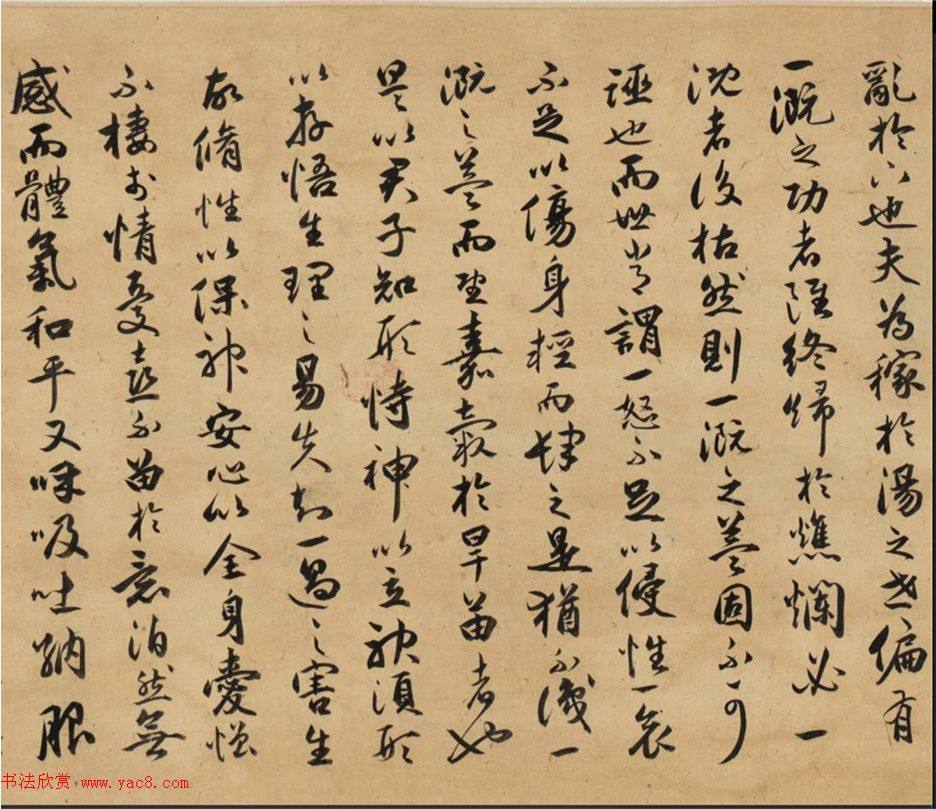 亂於下也夫為稼於湯之世偏有
一溉之功者雖終歸於燋爛必一
溉者後枯然則一溉之益固不可
誣也而世常謂一怒不足以侵性一哀
不足以傷身輕而肆之是猶不識一
溉之益而望嘉穀於旱苗者也
是以君子知形恃神以立神須形
以存悟生理之易失知一過之害生
故脩性以保神安心以全身愛憎
不棲於情憂喜不留於意泊然無
感而體氣和平又呼吸吐納服
书法欣赏 www.yac8.com